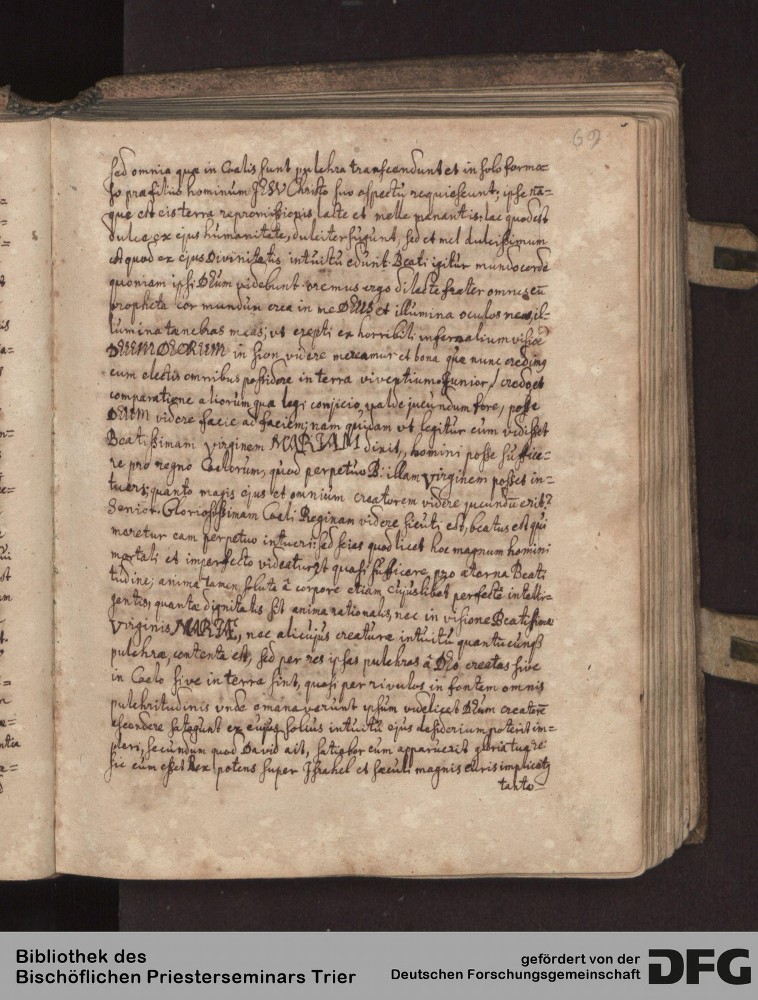 69
sed omnia quæ in Cœlis sunt pulchra transcendunt et in solo formo=
so præ filiis hominum JESU Christo suo aspectu requiescunt; ipse na=
que est cis terra repromissionis, lacte et melle manantis; lac quod est
dulce ex ejus humanitate, dulciter sugunt, sed et mel dulcissimum
est quod ex ejus Divinitatis intuitu edunt. Beati igitur mundo corde
quoniam ipsi DEum videbunt. oremus ergo dilecte frater omnes cũ
propheta cor mundum crea in me DEUS et illumina oculos meos, il-
lumina tenebras meas; ut erepti ex horribili infernalium visioē
DEUM DEORUM in sion videre mereamur et bona quæ nunc credimq
cum electis omnibus possidere in terra viventium. Junior / credo et
comparatione aliorum quæ legi conjicio, valde jucundum fore, posse
DEUM videre facie ad faciem; nam quidam ut legitur cum vidisset
Beatissimam Virginem MARIAM dixit, homini posse suffice=
re pro regno Cœlorum, quod perpetuo B: illam Virginem posset in=
tueri; quanto magis ejus et omnium creatorem videre jucundũ erit?
Senior. Gloriosissimam Cœli Reginam videre sicuti est, beatus est qui
maretur eam perpetuo intueri; sed scias quod licet hoc magnum homini
mortali et imperfecto videatur, et quasi sufficere pro æterna Beati
tudine; anima tamen soluta â corpore etiam cujuslibet perfecte intelli-
gentis, quantæ dignitatis sit anima rationalis, nec in visione Beatissimæ
Virginis MARIÆ, nec alicujus creaturæ intuitu quantucunqȝ
pulchræ, contenta est, sed per res ipsas pulchras â DEO creatas sive
in Cœlo sive in terra sint, quasi per rivulos in fontem omnis
pulchritudinis unde emanaverunt ipsum videlicet DEum creatorē
escendere satagunt ex cujus solius intuitu ejus desiderium poterit im=
pleri, secundum quod David ait, satiabor cum apparuerit gloria tua
sic cum esset Rex potens super Israhel et sæculi magnis curis implicatq
tanto=
Bibliothek des
Bischöflichen Priesterseminars Trier
gefördert von der
Deutschen Forschungsgemeinschaft
DFG